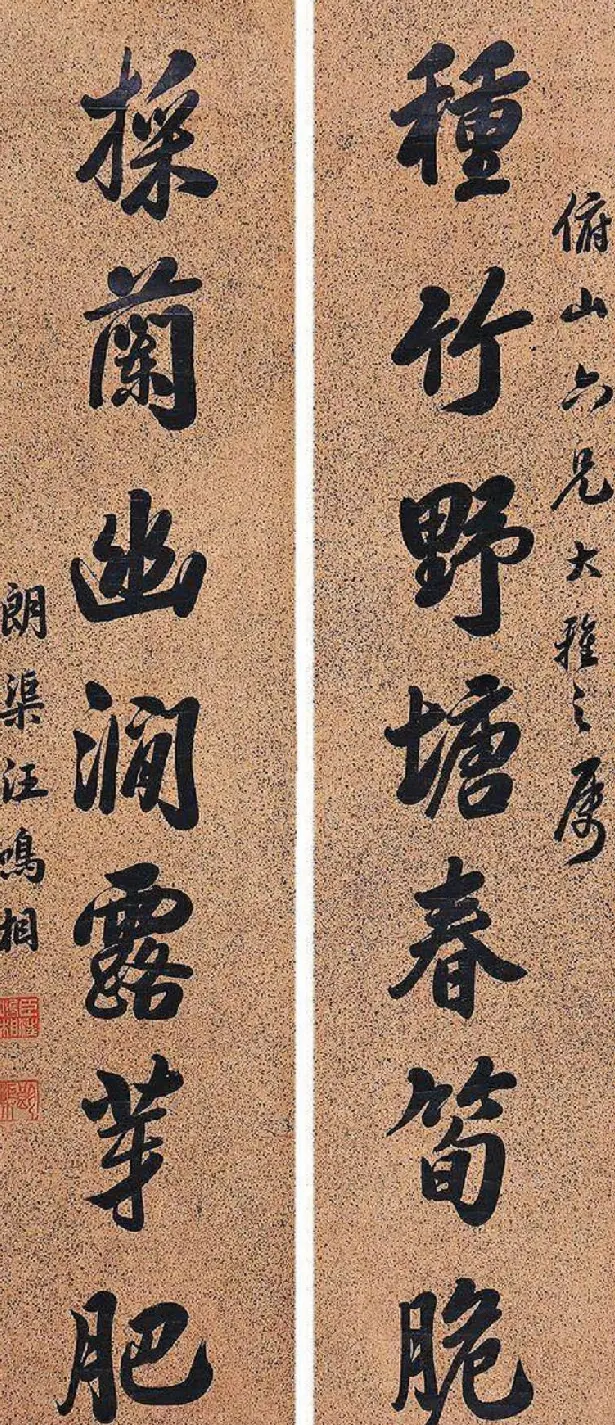 俯山六兄大雅之属
種竹野塘春筍脆
採蘭幽澗露芽肥
朗渠汪鳴相